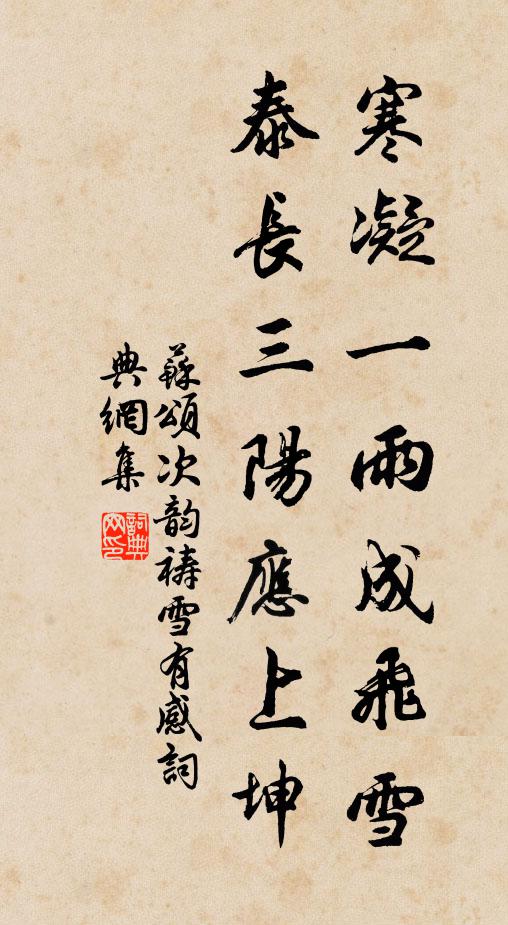 寒凝一雨成飛雪
泰長三陽應上坤
蘇頌次韵禱雪有感詞
典網集
詞典網印